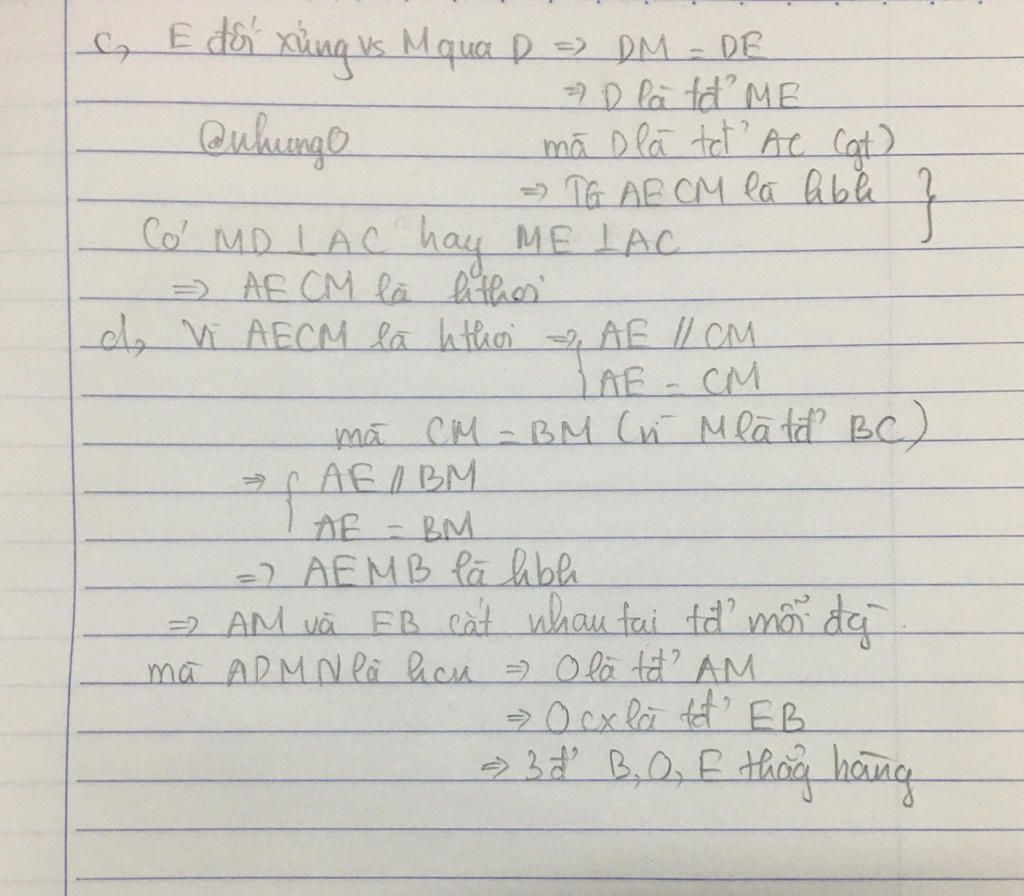 c, E đối xứng vs M qua D => DM = DE
=> D là tđ' ME
@nhung0 mà D là tđ' AC (gt)
=> TG AECM là hbh }
Có MD ⊥ AC hay ME ⊥ AC
=> AECM là hthoi
d, Vì AECM là hthoi => { AE // CM
AE = CM
mà CM = BM (vì M là tđ' BC)
=> { AE // BM
AE = BM
=> AEMB là hbh
=> AM và EB cắt nhau tại tđ' mỗi đg
mà ADMN là hcn => O là tđ' AM
=> O cx là tđ' EB
=> 3 đ' B, O, E thẳg hàng